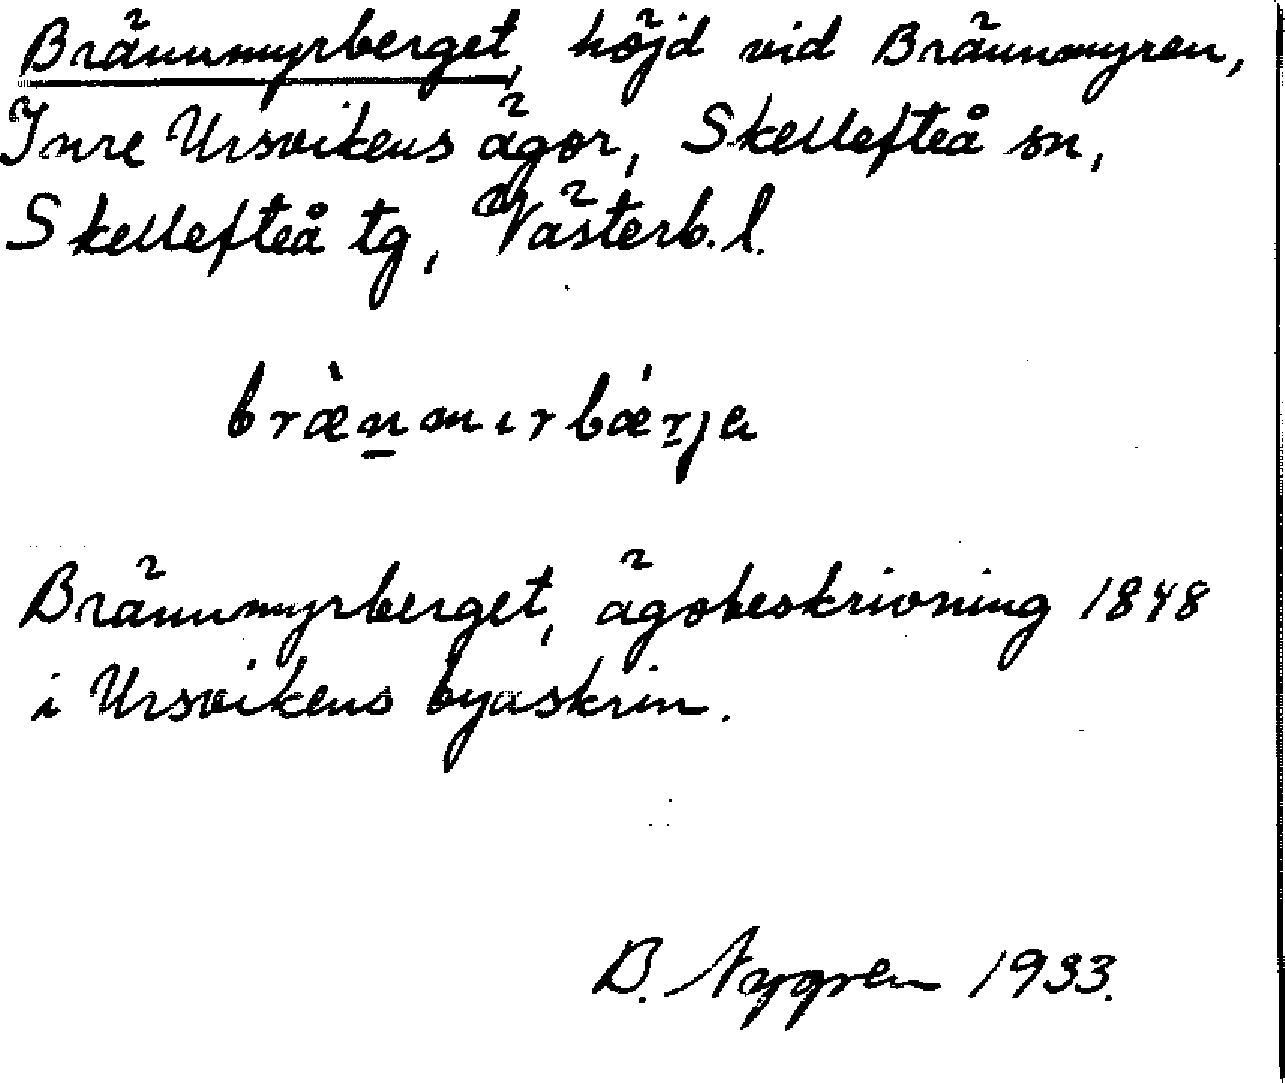 Brännmyrberget, höjd vid Brännmyren,
Inre Ursvikens ägor, Skellefteå sn,
Skellefteå tg, Västerb. l.
bræ̀n̲mırbǽr̲ja
Brännmyrberget, ägobeskrivning 1848
i Ursvikens byaskrin.
B. Nygren 1933.